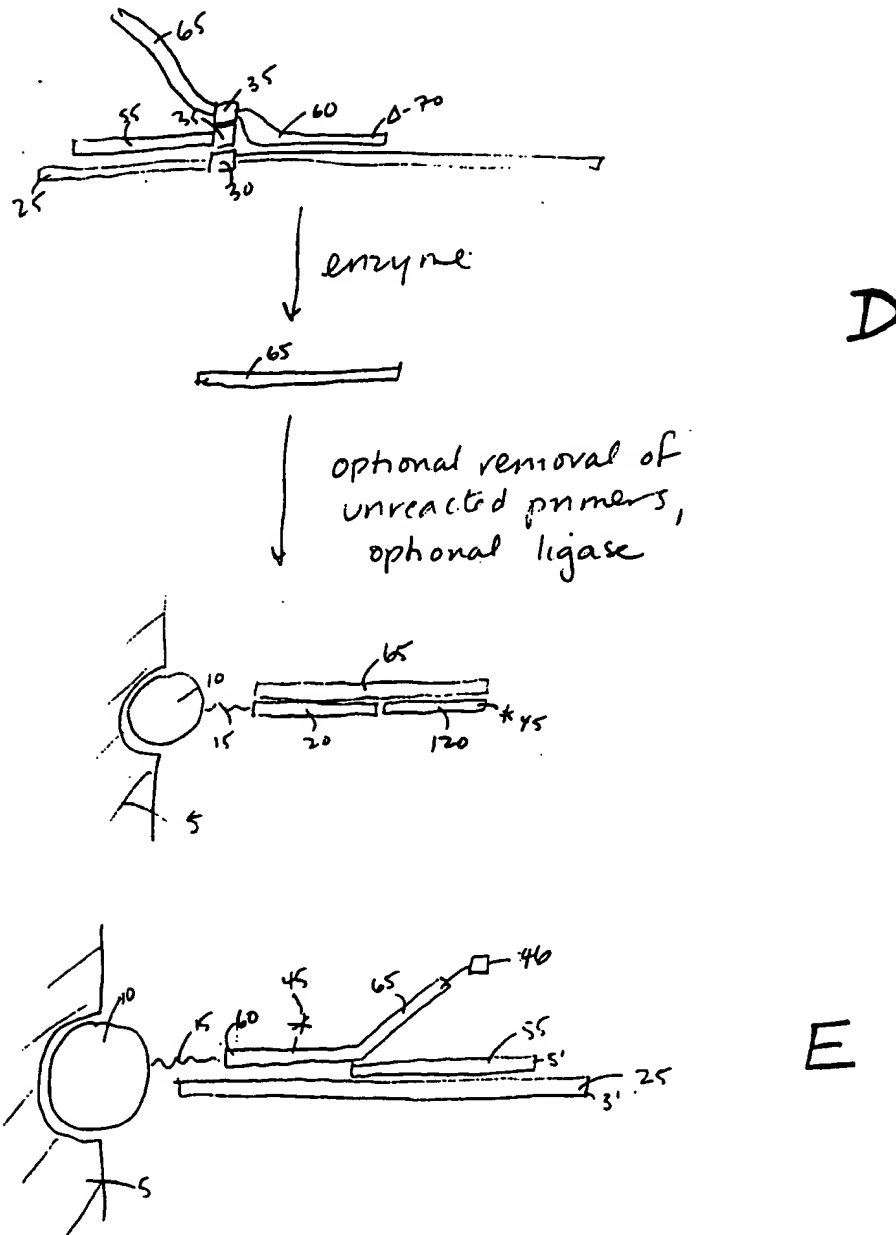 65
35
55
35
60
Δ-70
25
30
enzyme
D
65
optional removal of
unreacted primers,
optional ligase
65
10
15
20
120
*45
5
46
45
65
10
15
60
*
55
5'
25
3'
E
5